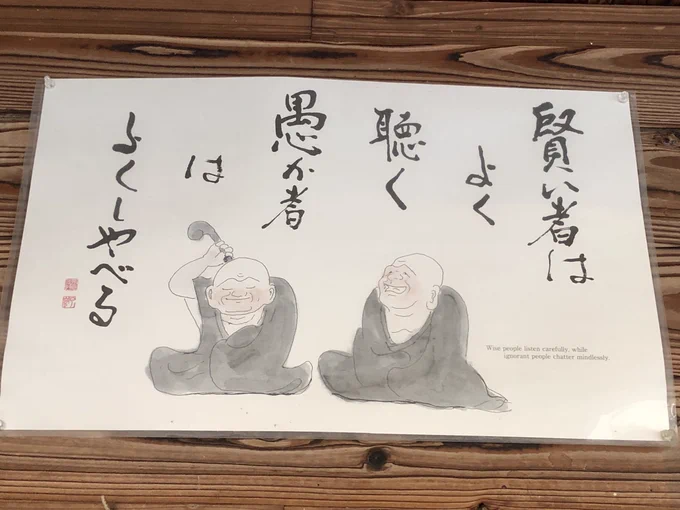 賢い者は
よく
聴く
愚か者
は
よくしゃべる
Wise people listen carefully, while
ignorant people chatter mindlessly.